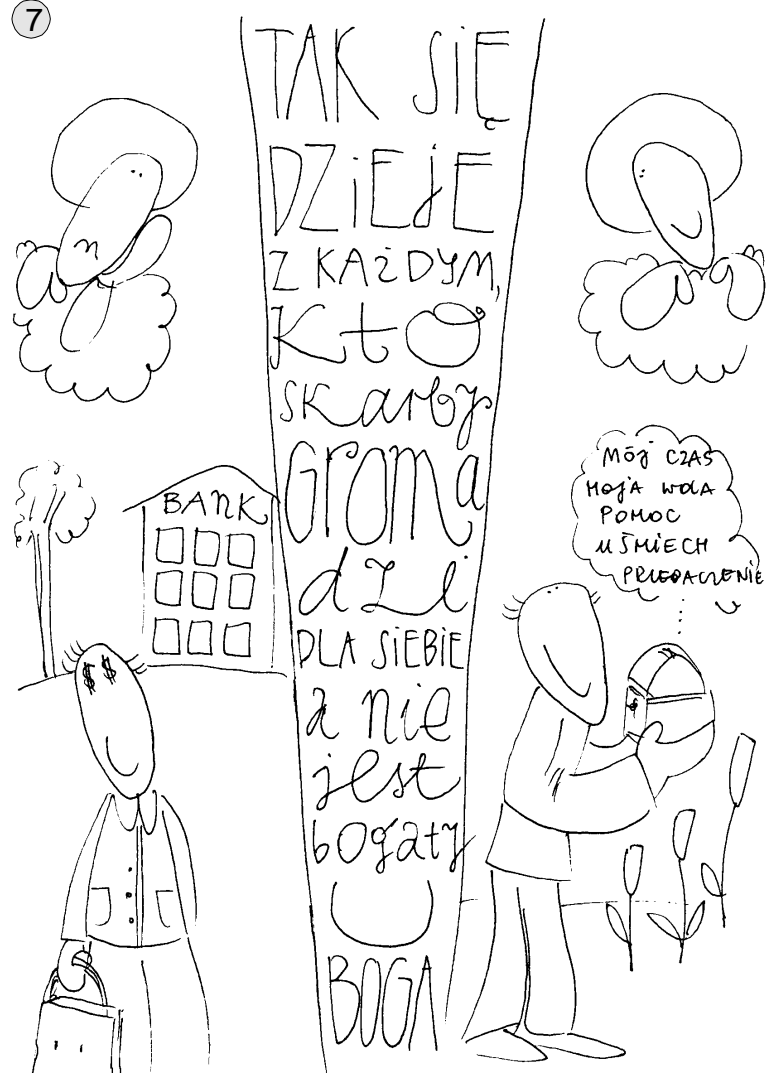 7
TAK SIĘ
DZIEJE
Z KAŻDYM,
KTO
SKARBY
GROMA
DZI
DLA SIEBIE
A NIE
JEST
BOGATY
U
BOGA
BANK
$ $
MÓJ CZAS
MOJA WOLA
POMOC
UŚMIECH
PRZEBACZENIE
$